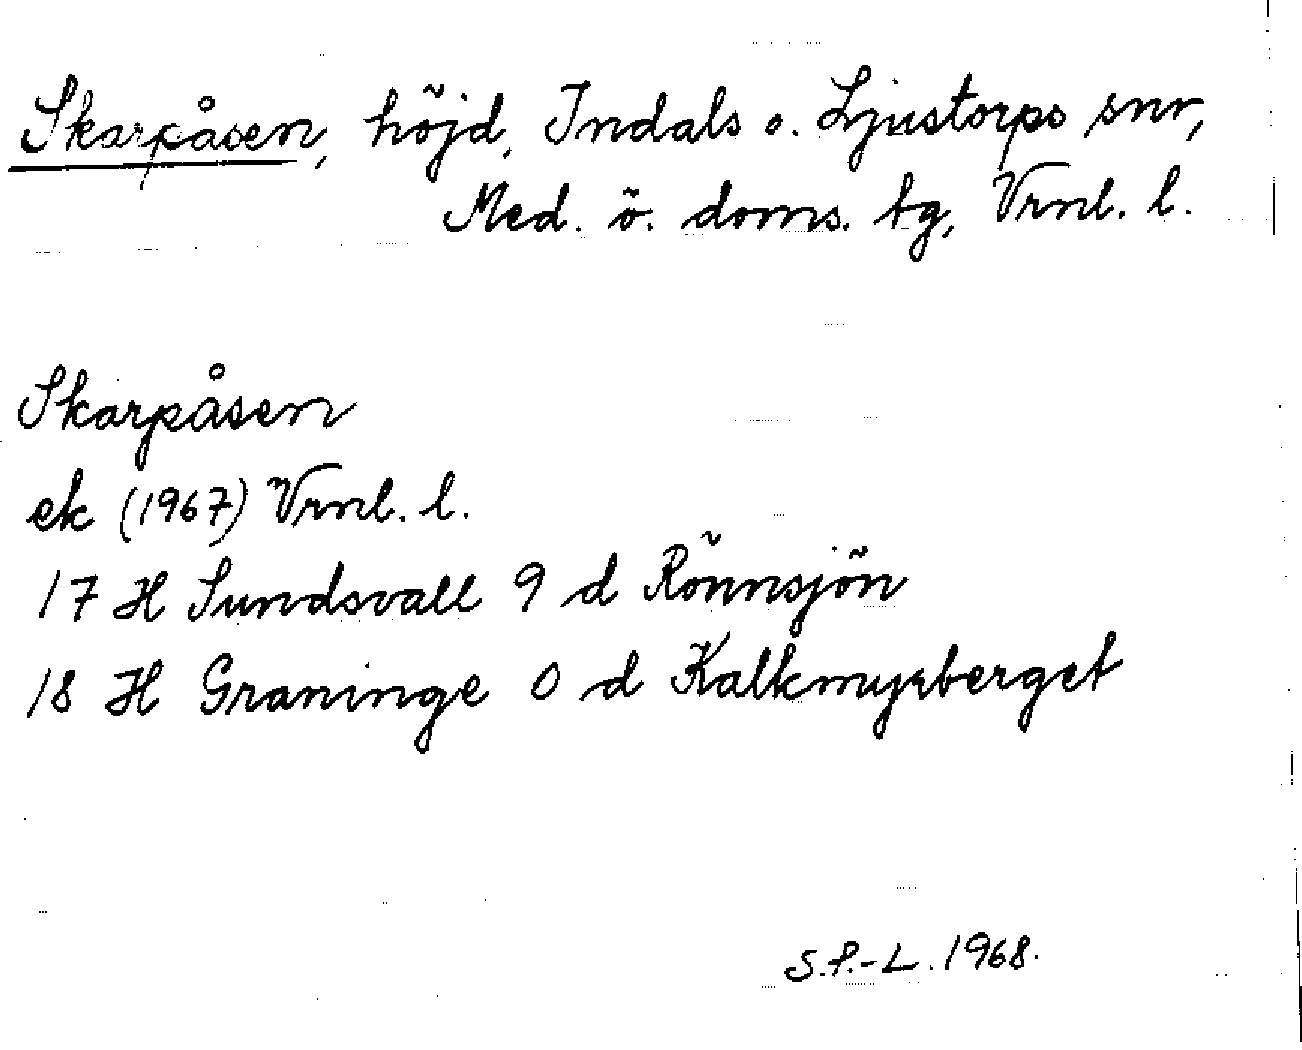 Skarpåsen, höjd, Indals o. Ljustorps snr,
Med. ö. doms. tg, Vrnl. l.
Skarpåsen
ek (1967) Vrnl. l.
17 H Sundsvall 9 d Rönnsjön
18 H Graninge 0 d Kalkmyrberget
S.P.-L. 1968.